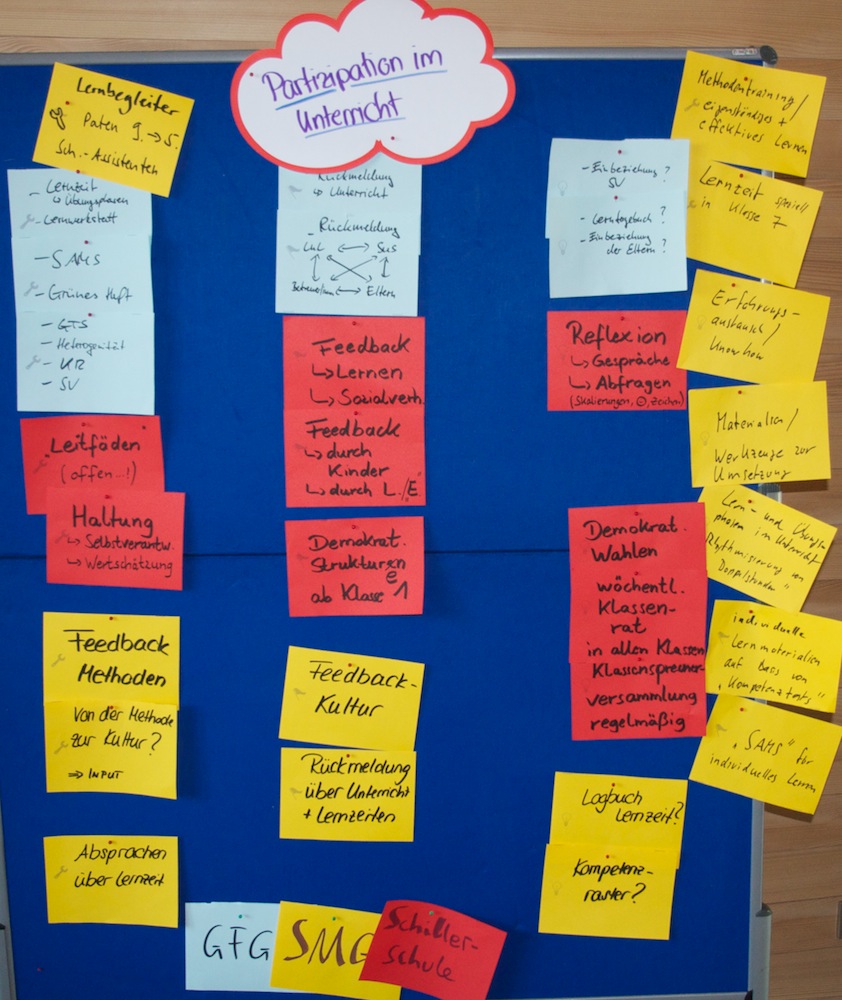 Partizipation im
Unterricht
Lernbegleiter
Paten 9. → 5.
Sch.-Assistenten
- Lernzeit
↳ Übungsphasen
- Lernwerkstatt
- SAMS
- Grünes Heft
- GTS
- Heterogenität
- KR
- SV
Leitfäden
(offen...!)
Haltung
↳ Selbstverantw.
↳ Wertschätzung
Feedback
Methoden
Von der Methode
zur Kultur?
⇒ INPUT
Absprachen
über Lernzeit
Rückmeldung
↳ Unterricht
- Rückmeldung
LuL ↔ SuS
↔ Eltern
Feedback
↳ Lernen
↳ Sozialverh.
Feedback
↳ durch
Kinder
↳ durch L./E.
Demokrat.
Strukturen
ab Klasse 1
Feedback-
Kultur
Rückmeldung
über Unterricht
+ Lernzeiten
- Einbeziehung ?
SV
- Lerntagebuch ?
- Einbeziehung
der Eltern ?
Reflexion
↳ Gespräche
↳ Abfragen
(Skalierungen, ☺, Zeichen)
Demokrat.
Wahlen
wöchentl.
Klassen-
rat
in allen Klassen
Klassensprecher-
versammlung
regelmäßig
Logbuch
Lernzeit?
Kompetenz-
raster?
Methodentraining /
eigenständiges +
effektives Lernen
Lernzeit speziell
in Klasse 7
Erfahrungs-
austausch /
Know how
Materialien /
Werkzeuge zur
Umsetzung
Lern- und Übungs-
phasen im Unterricht
Rhythmisierung von
Doppelstunden "
individuelle
Lernmaterialien
auf Basis von
"Kompetenztests"
"SAMS" für
individuelles Lernen
GFG
SMG
Schiller-
schule